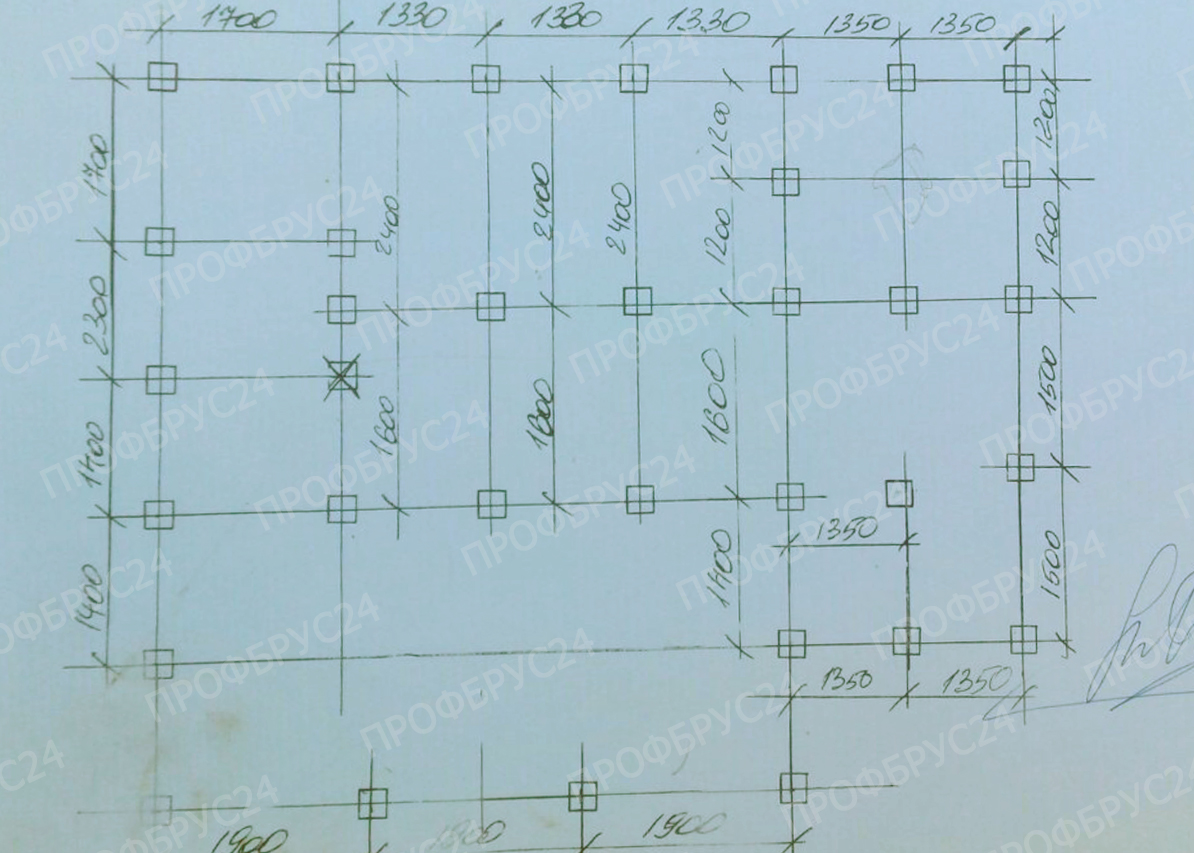 1700 1330 1330 1330 1350 1350
1700
2300
1400
1400
2400
1600
2400
1600
2400
1200
1200
1600
1400
1200
1200
1500
1500
1350
1350 1350
1900 1900 1900
ПРОФБРУС24